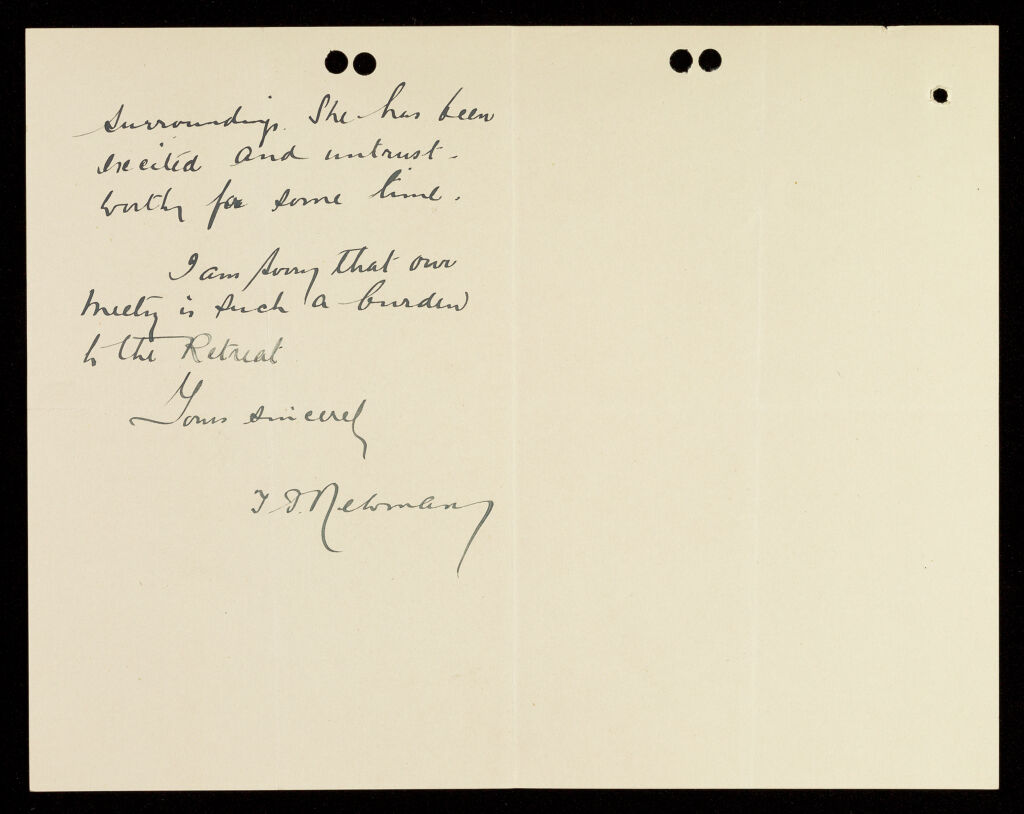 surroundings. She has been
excited and untrust-
worthy for some time.
I am sorry that our
Meeting is such a burden
to the Retreat
Yours sincerely
T. Newman